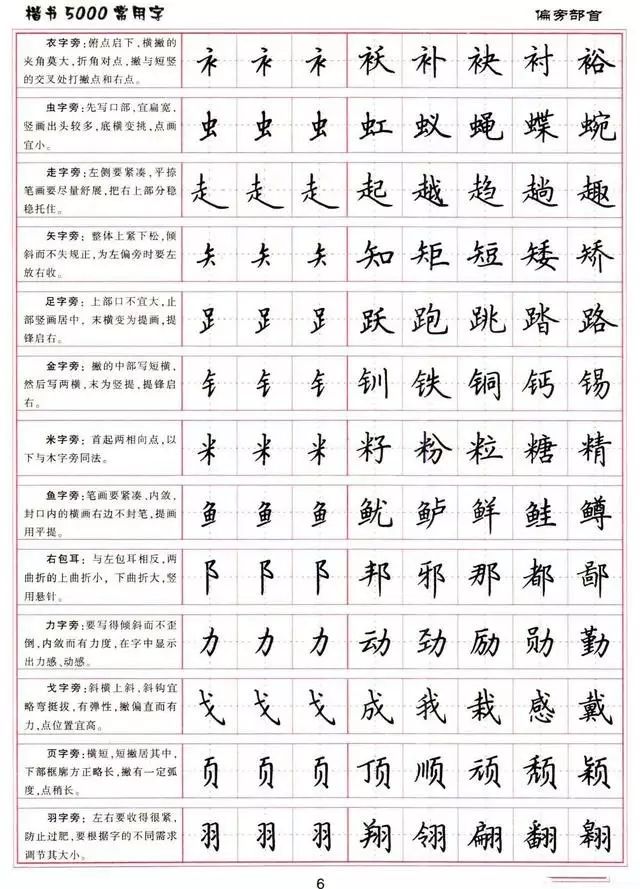 楷书5000常用字
偏旁部首
衣字旁：俯点启下，横撇的
夹角莫大，折角对点，撇与短竖
的交叉处打撇点和右点。
衤 衤 衤 袄 补 袂 衬 裕
虫字旁：先写口部，宜扁宽，
竖画出头较多，底横变挑，点画
宜小。
虫 虫 虫 虹 蚁 蝇 蝶 蜿
走字旁：左侧要紧凑，平捺
笔画要尽量舒展，把右上部分稳
稳托住。
走 走 走 起 越 趋 趟 趣
矢字旁：整体上紧下松，倾
斜而不失规正，为左偏旁时要左
放右收。
矢 矢 矢 知 矩 短 矮 矫
足字旁：上部口不宜大，止
部竖画居中，末横变为提画，提
锋启右。
𧾷 𧾷 𧾷 跃 跑 跳 踏 路
金字旁：撇的中部写短横，
然后写两横，末为竖提，提锋启
右。
钅 钅 钅 钏 铁 铜 钙 锡
米字旁：首起两相向点，以
下与木字旁同法。
米 米 米 籽 粉 粒 糖 精
鱼字旁：笔画要紧凑，内敛，
封口内的横画右边不封笔，提画
用平提。
鱼 鱼 鱼 鱿 鲈 鲜 鲑 鳟
右包耳：与左包耳相反，两
曲折的上曲折小，下曲折大，竖
用悬针。
阝 阝 阝 邦 邪 那 都 鄙
力字旁：要写得倾斜而不歪
倒，内敛而有力度，在字中显示
出力感、动感。
力 力 力 动 劲 励 勋 勤
戈字旁：斜横上斜，斜钩宜
略弯挺拔，有弹性，撇偏直而有
力，点位置宜高。
戈 戈 戈 成 我 栽 感 戴
页字旁：横短，短撇居其中，
下部框廓方正略长，撇有一定弧
度，点稍长。
页 页 页 顶 顺 顽 颓 颖
羽字旁：左右要收得很紧，
防止过肥，要根据字的不同需求
调节其大小。
羽 羽 羽 翔 翎 翩 翻 翱
6